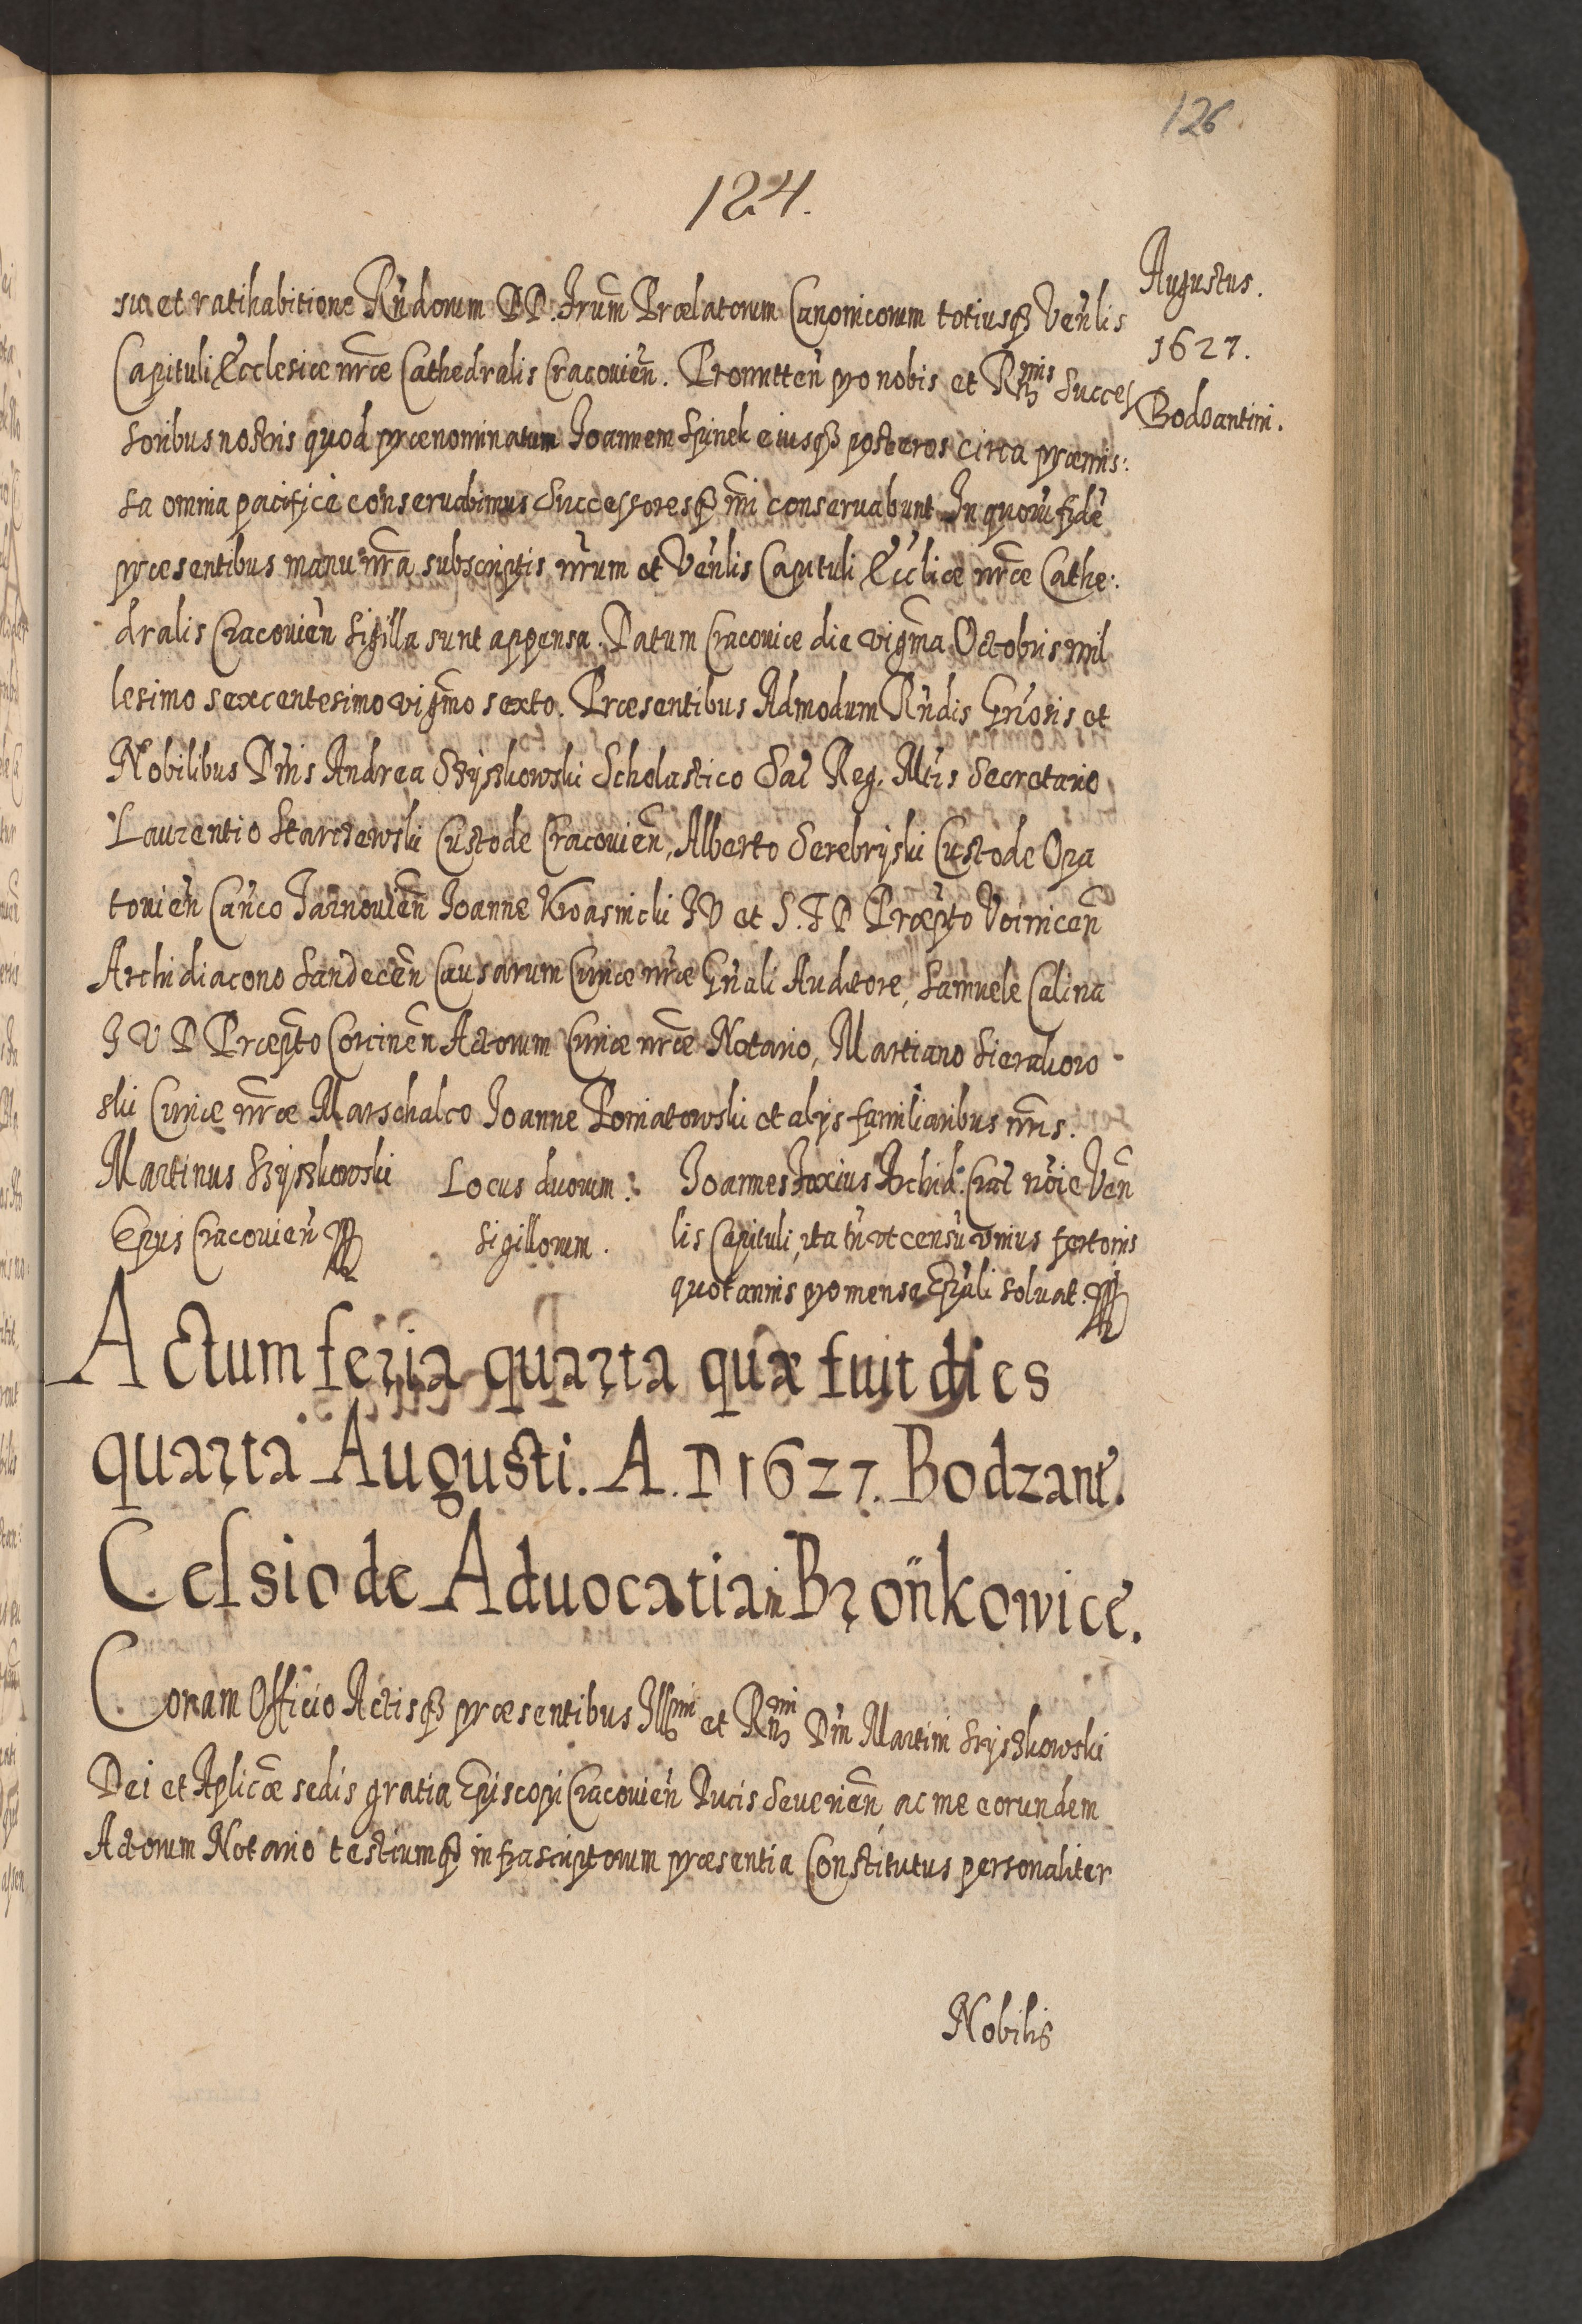 126.
124.
Augustus.
1627.
Bodzantini.
su et ratihabitione Rndorum DD. frum Prælatorum Canonicorum totiusq3 Venlis
Capituli Ecclesiæ nræ Cathedralis Cracovien. Promitten pro nobis et Rmis Succes
soribus nostris quod prænominatum Joannem Spinek eiusq3 posteros circa præmis:
sa omnia pacificè conservabimus Successoresq3 nri conservabunt. In quorū fidē
præsentibus manu nrã subscriptis nrum et Venlis Capituli Eccliæ nræ Cathe:
dralis Cracovien Sigilla sunt appensa. Datum Cracoviæ die vigma Octobris mil
lesimo sexcentesimo vigmo sexto. Præsentibus Admodum Rndis Grosis et
Nobilibus Dnis Andrea Szyszkowski Scholastico Sac Reg. Mtis Secretario
Laurentio Starczewski Custode Cracovien, Alberto Serebryski Custode Opa
tovien Canco Tarnovien Joanne Kroasnicki JV et S. T D Præpto Voinicen
Archidiacono Sandecen Causarum Curiæ nræ Gnali Auditore, Samuele Calina
J V D Præpto Corcinen Actorum Curiæ nræ Notario, Martiano Sierakow
ski Curiæ nræ Marschalco Joanne Poniatowski et alijs familiaribus nris.
Martinus Szyszkowski
Epus Cracovien
Locus duorum
Sigillorum.
Joannes Foxius Archid: Crac noie Ven
lis Capituli, ita tn vt censu vnius fertonis
quotannis pro mensa Epali soluat.
Actum feria quarta quæ fuit dies
quarta Augusti. A. D 1627. Bodzant.
Celsio de Aduocatia in Bronkowice.
Coram Officio Actisq3 præsentibus Illmi et Rmi Dm Martini Szyszkowski
Dei et Aplicæ sedis gratia Episcopi Cracovien Ducis Severien, ac me eorundem
Actorum Notario testiumq3 infrascriptorum præsentia Constitutus personaliter
Nobilis